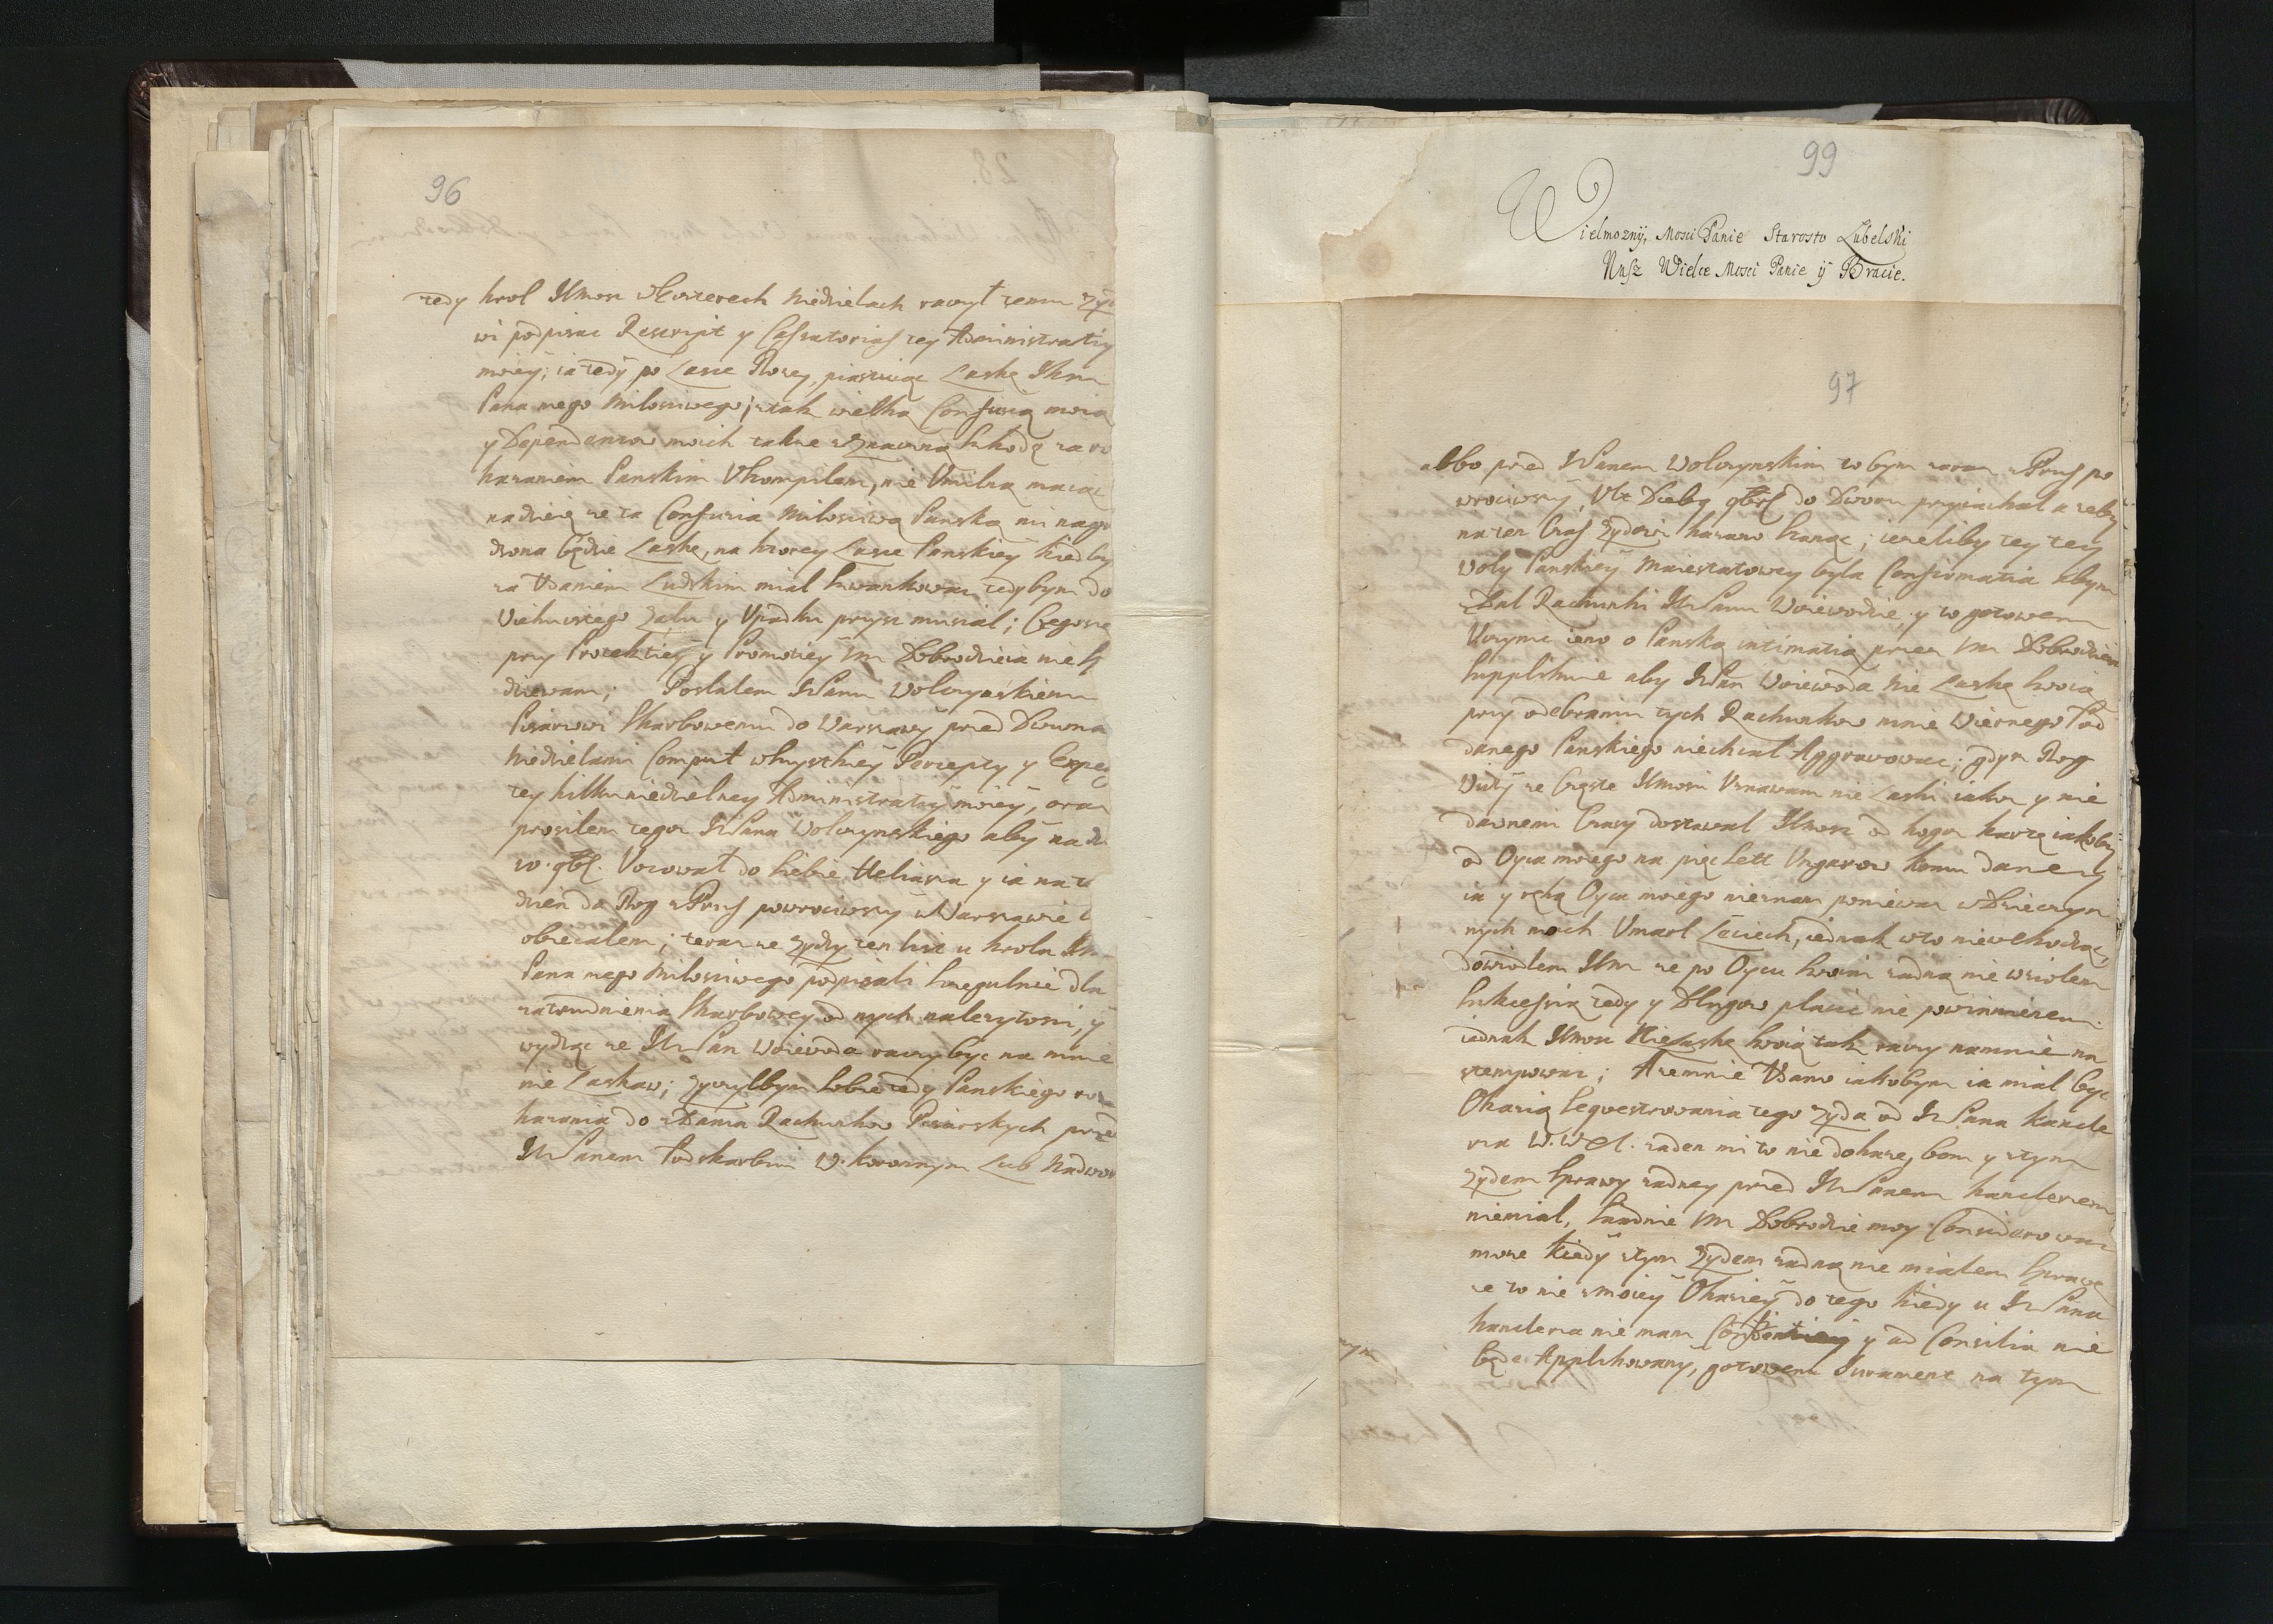 96
tedy krol Jmosc w kwterech Niedzielach raczył temu Zydo
wi podpisac Rescript y Cassatorias tey Administratiy
moiey; ia tedy po Łasce Bozey, piastuiąc Łaskę Jkm
Pana mego Miłosciwego, z tak wielką Confusią moią
y Dependentow moich także
kazaniem Panskim
nadzieię ze ta Confusia Miłosciwą Panską mi nagro
dzona będzie Łaską, na ktorey Łasce Panskiey kiedby
za Udaniem Ludzkim miał Szwankowac tedybym do
Wiekuistego Zalu y Upadku przysc musiał; Czego się
przy Protektiey y Promotiey Vm Dobrodzieia nie s
dziewam; Posłałem JmPanu Wolczynskiemu
Pisarzowi Skarbowemu do Warszawy przed Dwuma
Niedzielami Comput wszystkiey Percepty y Expe
tey kilku niedzielney Administratiy moiey, oraz
prosiłem tegoz JmPana Wolczynskiego aby na d
w. qbl. do Siebie Heliasza y ia na t
dzien da Bog z Prus powrociwszy w Warszawie
obiecałem; teraz ze Zydzy ten list u krola Jm
Pana mego Miłosciwego podpisali Szczegulnie dla
zatrudnienia Skarbowey od nych nalezytosci, y
wydząc ze JmPan Woiewoda raczy byc na mnie
nie Łaskaw; zyczyłbym Sobie tedy Panskiego roz
kazania do zDania Rachunkow Pisarskych przed
JmPanem Podskarbim W. koronnym Lub Nadwor
99
Wielmoznÿ, Mosci Panie Starosto Lubelski
Nasz Wielce Mosci Panie ÿ Bracie.
97
albo przed JmPanem Wolczynskim to bym zaraz z Prus po
wrociwszy, Dieby qbl do Dworu przyiachał a zeby
na ten Czas Zydowi kazano Stanąc; iezeliby tey tey
Woly Panskiey Maiestatowey była Confirmatia abym
zDał Rachunki JmPanu Woiewodzie, y to gotowem
Uczynic ieno o Panską intimatią przez Vm Dobrodzieia
Supplikuie aby JmPan Woiewoda Nie Łaskę Swoią
przy odebraniu tych Rachunkow mnie Wiernego Pod
danego Panskiego niechciał Aggrawowac; gdysz Bog
Widzy ze Częste Jmosci Uznawam nie Łaski iakoz y nie
dawnemi Czasy dostawał Jmosc od kogoz kartę iakoby
od Oyca moiego na pięc Sett Ungarow komu daney
ia y ręką Oyca moiego nieznam poniewaz w Dziecyn
nych moich Umarł Leciech, iednak w to nie wchodząc
dowiodłem Jm ze po Oycu Swoim zadną nie wziołem
Sukcessią tedy y Długow płacic nie powinienem.
iednak Jmosc Niełaskę Swoią tak raczy namnie na
stempowac; A ze mnie Udano iakobym ia miał byc
Okazią Sequestrowania tego Zyda od JmPana kancle
rza W. W. X. L. zaden mi to nie dokaze, bom y z tym
Zydem Sprawy zadney przed JmPanem kanclerzem
niemiał, Snadnie Vm Dobrodzie moy Considerowac
moze kiedy z tym Zydem zadną nie miałem Sprawę
ze to nie z moiey Okaziey do tego kiedy u JmPana
kanclerza nie mam y ad Consilia nie
będę Applikowany, gotowem Jurament na tym